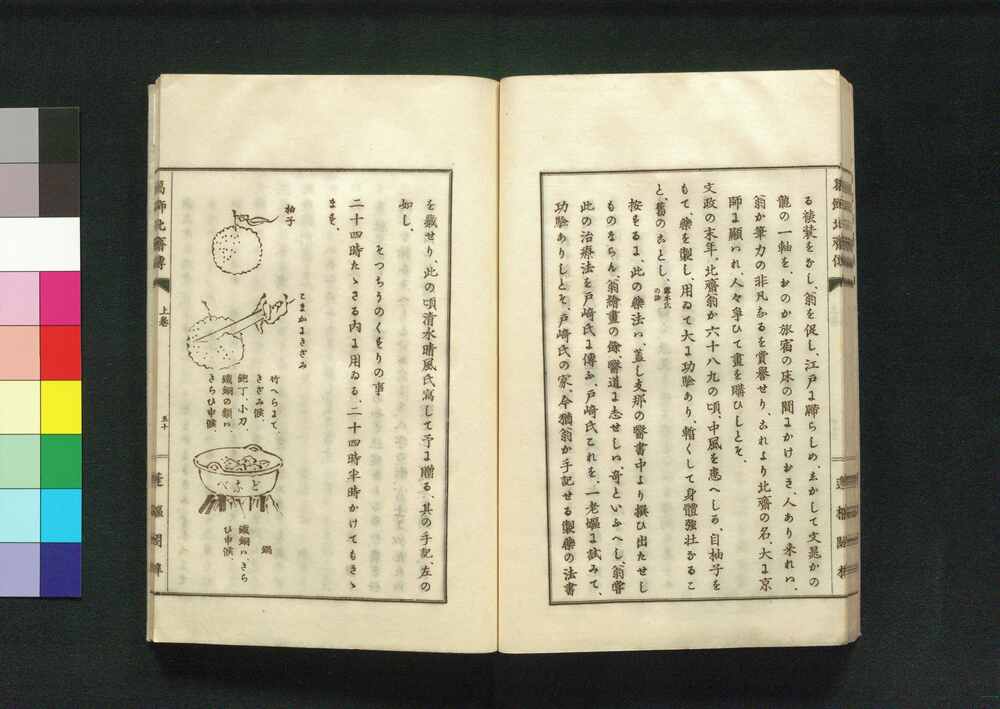 る旅装をかし、翁を促し、江戸に歸らしめ、しかして文晁かの
龍の一軸を、おのか旅宿の床の間にかけおき、人あり来れハ、
翁か筆力の非凡なるを賞譽せり、これより北齋の名、大に京
師に顯ハれ、人々爭ひて畫を購ひしとそ、
文政の末年、北齋翁か六十八九の頃、中風を患へしる、自柚子を
もて、藥を製し、用ゐて大に功驗あり、暫くして身體強壮なるこ
と、舊のことし、
按するに、此の藥法ハ、蓋し支那の醫書中より撰ひ出たせし
ものならん、翁繪畫の餘、醫道に志せしハ、奇といふへし、翁嘗
此の治療法を戸崎氏に傳ふ、戸崎氏これを、一老嫗に試みて、
功驗ありしとそ、戸崎氏の家、今猶翁か手記せる製藥の法書
を藏せり、此の頃清水晴風氏寫して予に贈る、其の手記、左の
如し、
そつちうのくすりの事
二十四時たゝさる内に用ゐる、二十四時半時かけてもきゝ
ます、
柚子
こまかにきざみ
竹へらにて、
きざみ候、
鉋丁、小刀、
鐵銅の類ハ、
きらひ申候、
どなべ
鍋
鐵銅ハ、きら
ひ申候、
葛飾北齋傳
上卷
五十
蓬樞閣梓